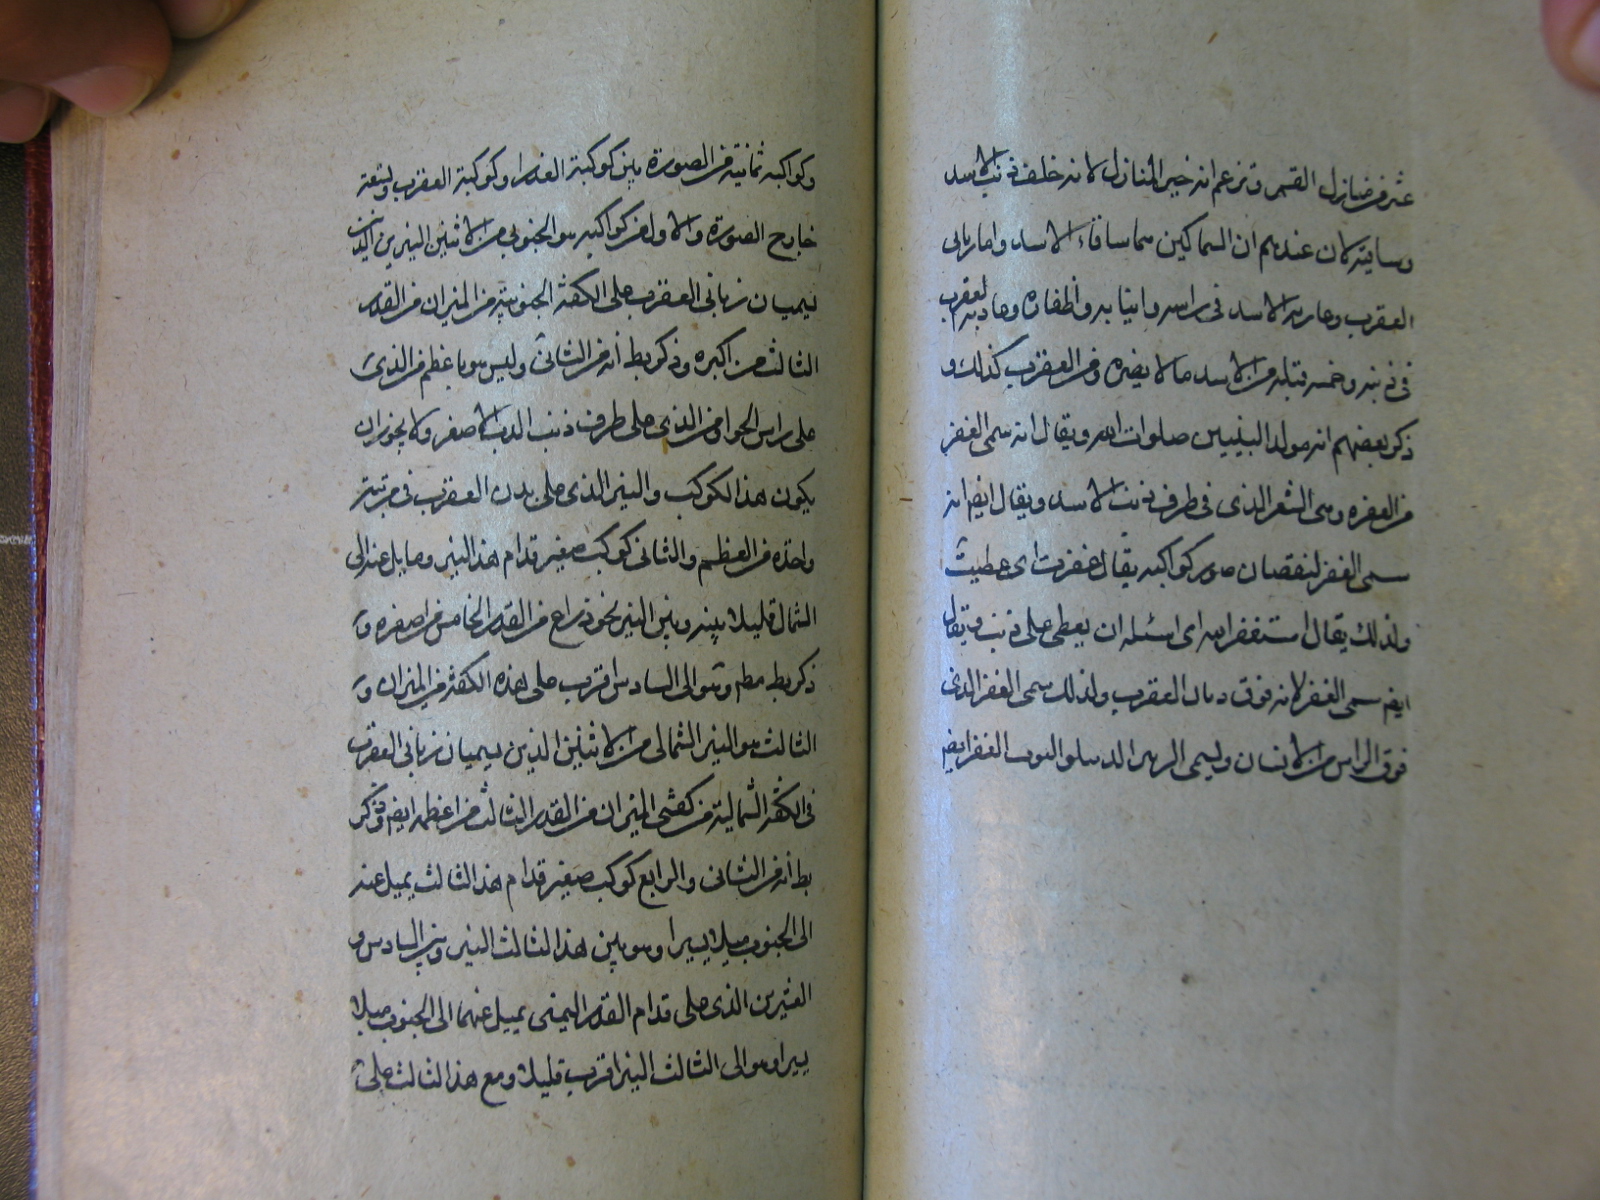 عشر من منازل القمر وتزعم انه خير المنازل لانه خلف ذنب الاسد
وساقيه لان عندهم ان السماكين هما ساقاء الاسد واما زبانى
العقرب وعادية الاسد فى راسه وانيابه واظفاره وعادية العقرب
فى ذنبه وخمسه فيليه من الاسد ما لا يضره ومن العقرب كذلك و
ذكر بعضهم انه مولد النبيين صلوات الله ويقال انه سمى الغفر
من الغفره وهى الشعر الذى فى طرف ذنب الاسد ويقال ايضا انه
سمى الغفر لنقصان ضوء كواكبه يقال غفرت اى غطيت
ولذلك يقال استغفر الله اى اسئله ان يغطى على ذنبى ويقال
ايضا سمى الغفر لانه فوق زبانى العقرب ولذلك سمى الغفر الذى
فوق الراس من الانسان ويسمى الغفر ايضا
وكواكبه ثمانية من الصورة بين كوكبة العذرا وكوكبة العقرب وتسعة
خارج الصورة والاول من كواكبه هو الجنوبى من الاثنين النيرين اللذين
يسميان زبانى العقرب على الكفة الجنوبية من الميزان من القدر
الثالث من اكبره وذكر بط أنه من الثانى وليس هو باعظم من الذى
على راس الحوا ومن الذى على طرف ذنب الدب الاصغر ولا يجوز ان
يكون هذا الكوكب والنير الذى على بدن العقرب فى مرتبة
واحدة من العظم والثانى كوكب صغير قدام هذا النير ومايل عنه الى
الشمال قليلا بينه وبين النير نحو ذراع من القدر الخامس من اصغره و
ذكر بط مطم وهو الى السادس اقرب على هذه الكفة من الميزان و
الثالث هو النير الشمالى من الاثنين الذين يسميان زبانى العقرب
فى الكفة الشمالية من كفتى الميزان من القدر الثالث من اعظمه ايضا وذكر
بط أنه من الثانى والرابع كوكب صغير قدام هذا الثالث يميل عنه
الى الجنوب ميلا يسيرا وهو بين هذا الثالث النير وبين السادس و
العشرين الذى على قدام القدم اليمنى يميل عنهما الى الجنوب ميلا
يسيرا وهو الى الثالث النير اقرب قليلا ومع هذا الثالث على